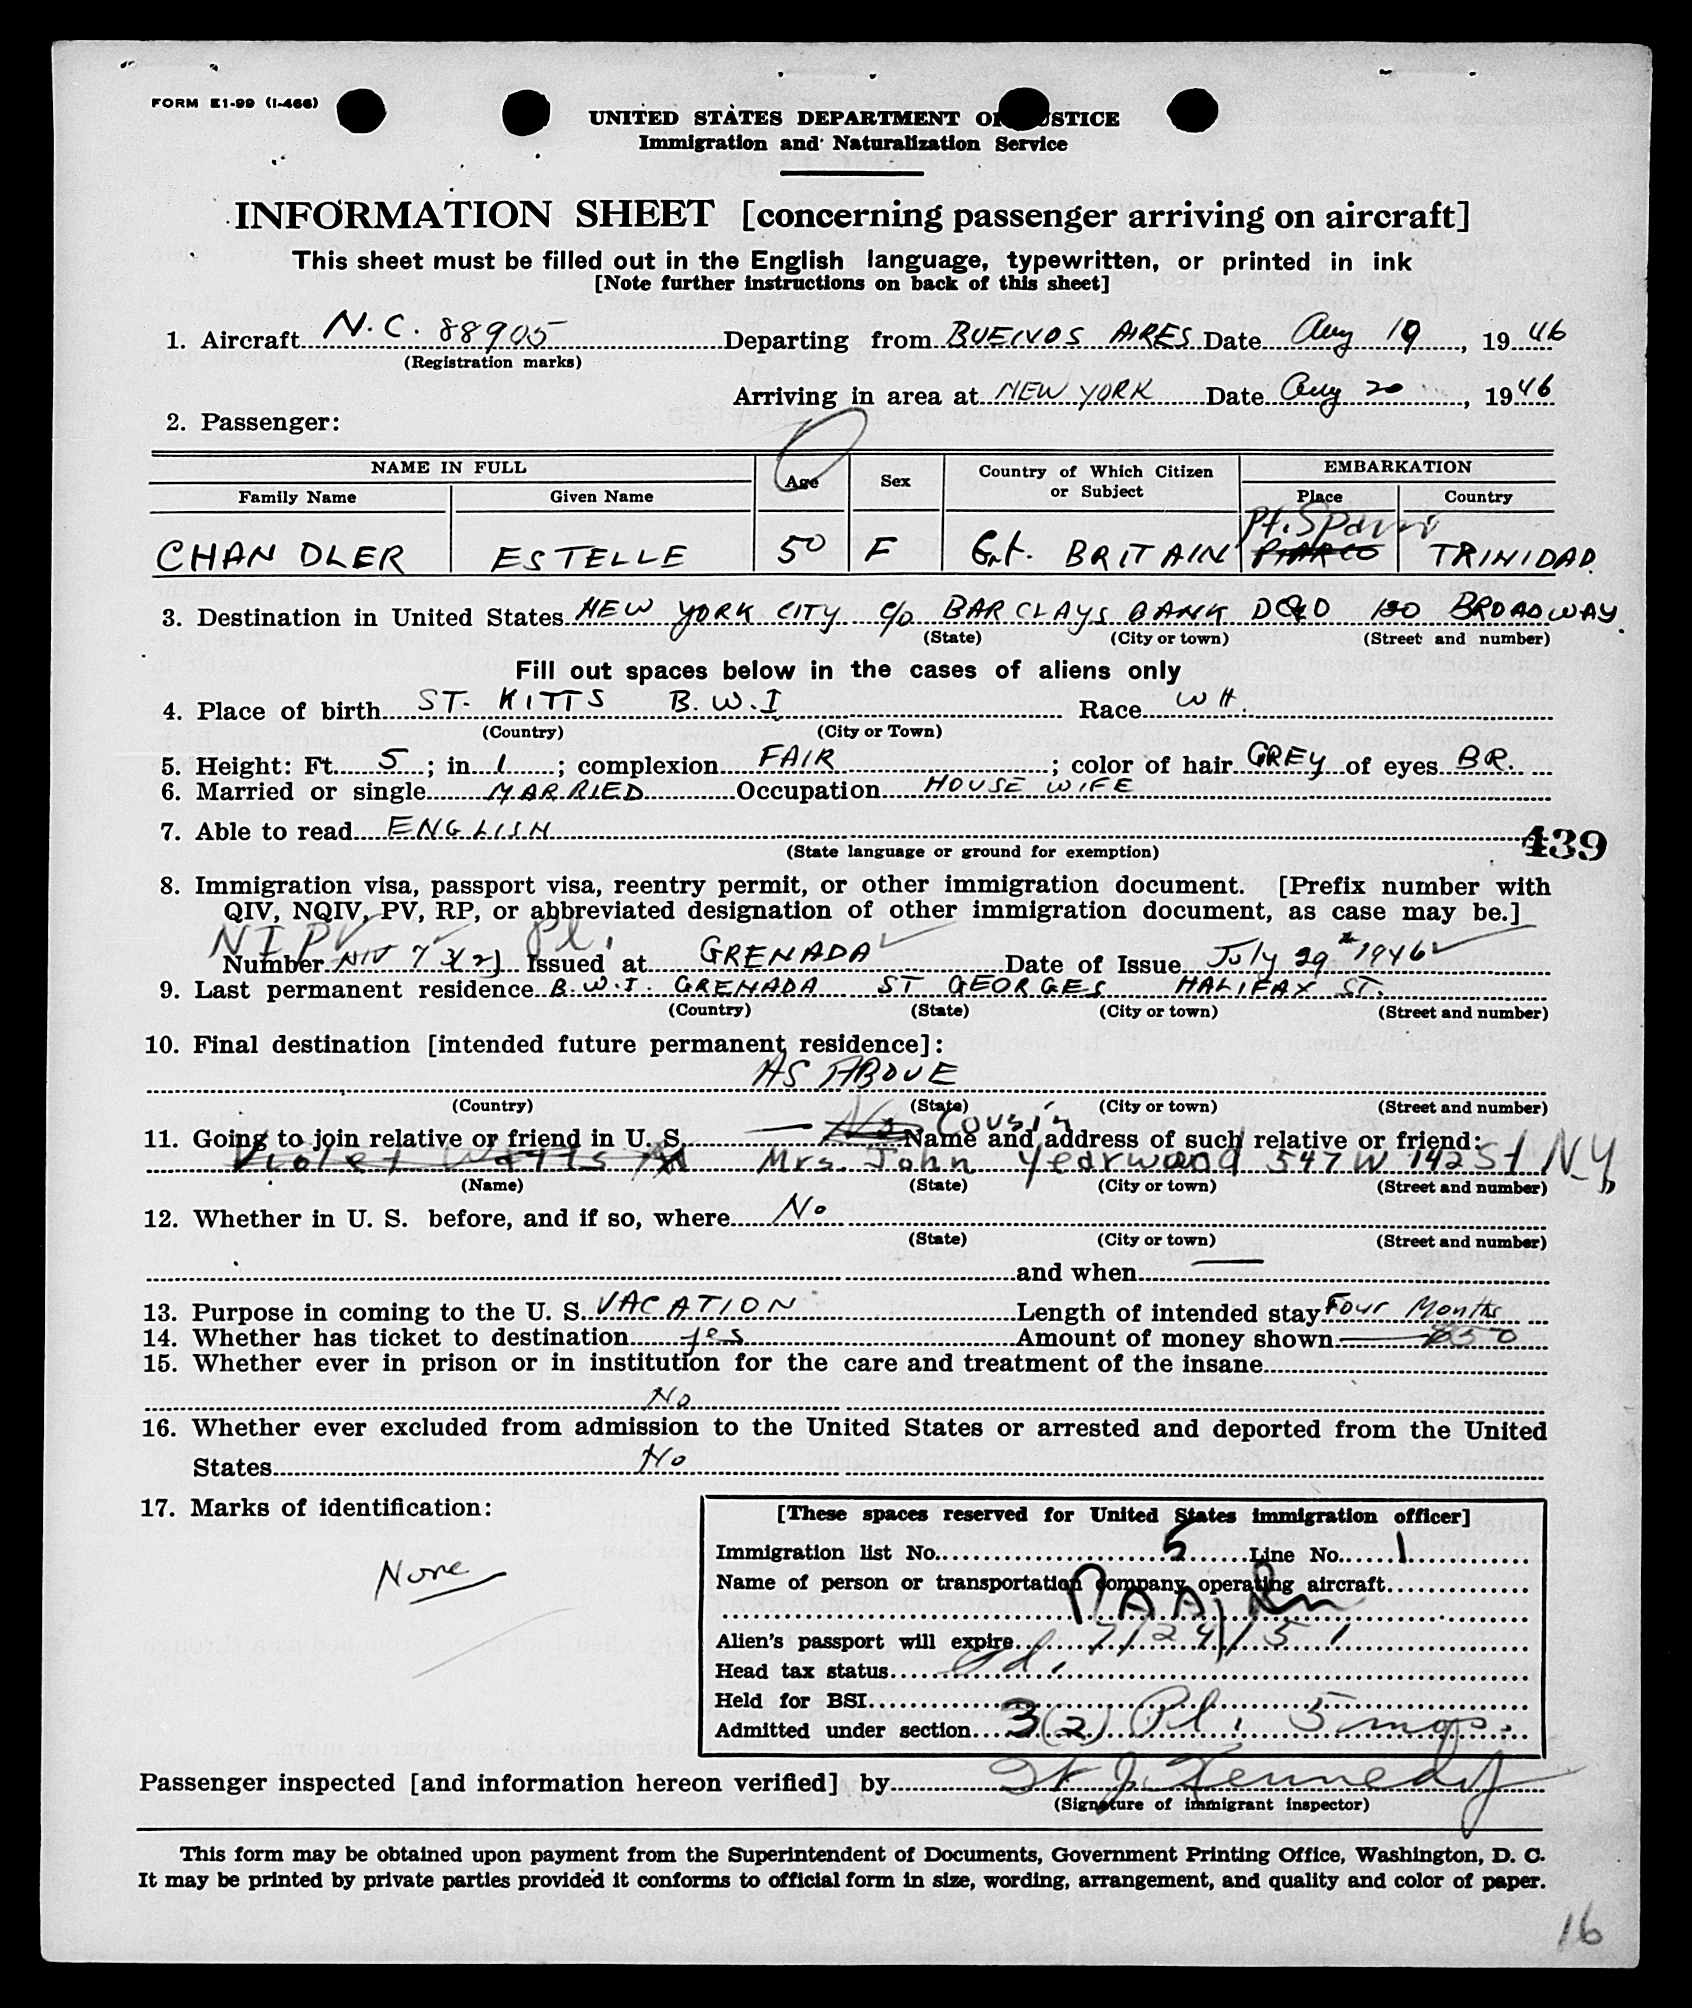 FORM E1-99 (I-466)
UNITED STATES DEPARTMENT OF JUSTICE
Immigration and Naturalization Service
INFORMATION SHEET [concerning passenger arriving on aircraft]
This sheet must be filled out in the English language, typewritten, or printed in ink
[Note further instructions on back of this sheet]
1. Aircraft N.C. 88905 Departing from BUENOS AIRES Date Aug 19, 1946
(Registration marks)
Arriving in area at NEW YORK Date Aug 20, 1946
2. Passenger:
NAME IN FULL Age Sex Country of Which Citizen or Subject EMBARKATION
Family Name Given Name Place Country
Pt. Spain
CHANDLER ESTELLE 50 F Gt. BRITAIN PIARCO TRINIDAD
3. Destination in United States NEW YORK CITY c/o BARCLAYS BANK DC&O 120 BROADWAY.
(State) (City or town) (Street and number)
Fill out spaces below in the cases of aliens only
4. Place of birth ST. KITTS B.W.I Race WH.
(Country) (City or Town)
5. Height: Ft. 5; in. 1; complexion FAIR; color of hair GREY of eyes BR.
6. Married or single MARRIED Occupation HOUSE WIFE
7. Able to read ENGLISH
(State language or ground for exemption)
439
8. Immigration visa, passport visa, reentry permit, or other immigration document. [Prefix number with
QIV, NQIV, PV, RP, or abbreviated designation of other immigration document, as case may be.]
NIPV Pl.
Number NIV 7 3(2) Issued at GRENADA Date of Issue July 29 1946
9. Last permanent residence B.W.I. GRENADA ST GEORGES HALIFAX ST.
(Country) (State) (City or town) (Street and number)
10. Final destination [intended future permanent residence]:
AS ABOVE
(Country) (State) (City or town) (Street and number)
11. Going to join relative or friend in U. S. — No Cousin Name and address of such relative or friend:
Violet Watts Mrs. John Yearwood 547 W 142 St N.Y
(Name) (State) (City or town) (Street and number)
12. Whether in U. S. before, and if so, where No
(State) (City or town) (Street and number)
and when —
13. Purpose in coming to the U. S. VACATION Length of intended stay Four Months
14. Whether has ticket to destination yes Amount of money shown 850
15. Whether ever in prison or in institution for the care and treatment of the insane
No
16. Whether ever excluded from admission to the United States or arrested and deported from the United
States No
17. Marks of identification:
None
[These spaces reserved for United States immigration officer]
Immigration list No. 5 Line No. 1
Name of person or transportation company operating aircraft
PAA
Alien's passport will expire 7/24/51
Head tax status
Held for BSI
Admitted under section 3(2) Pl. 5 mos.
Passenger inspected [and information hereon verified] by J. Kennedy
(Signature of immigrant inspector)
This form may be obtained upon payment from the Superintendent of Documents, Government Printing Office, Washington, D. C.
It may be printed by private parties provided it conforms to official form in size, wording, arrangement, and quality and color of paper.
16